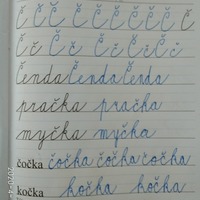 Č Č Č Č Č Č Č Č Č
Č č Č č Č č Č č Č č
Čenda Čenda Čenda
pračka pračka
myčka myčka
čočka čočka čočka čočka
kočka kočka kočka